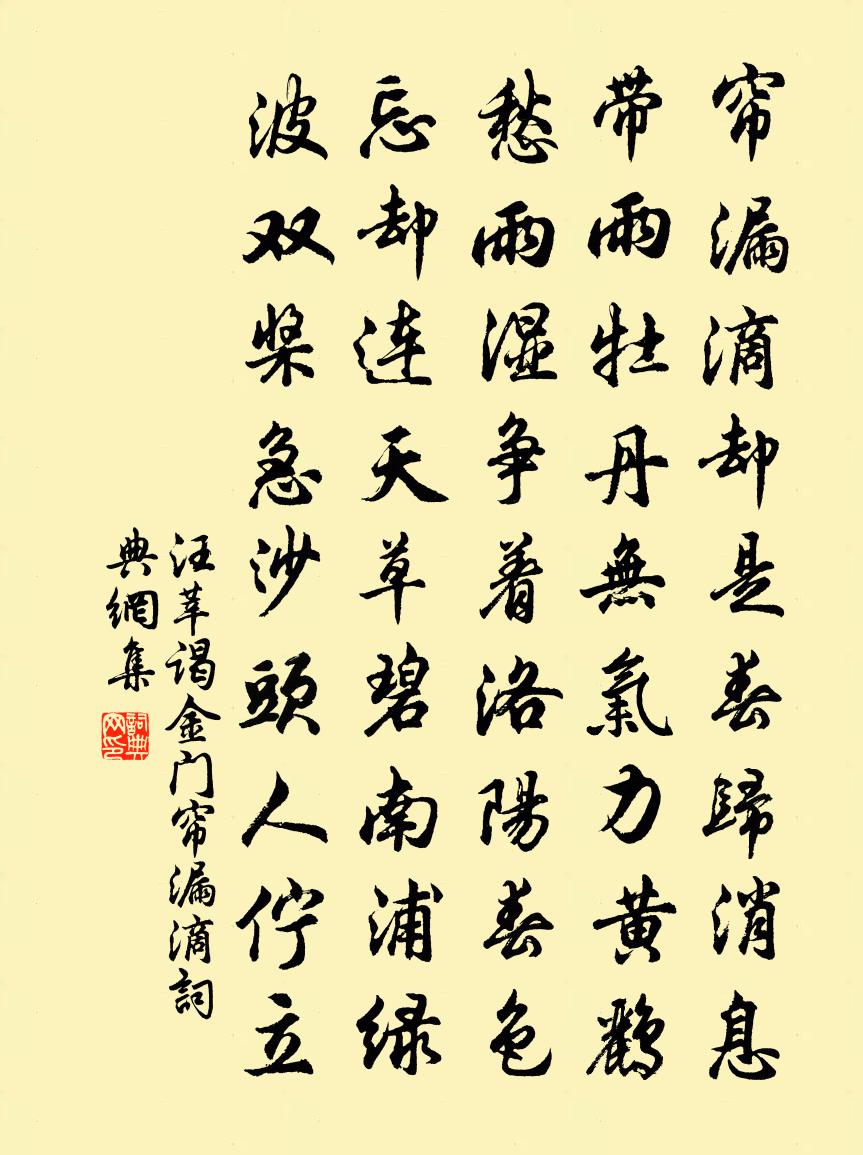 帘漏滴却是春歸消息
带雨牡丹無氣力黄鸝
愁雨湿争着洛陽春色
忘却連天草碧南浦绿
波双桨急沙頭人佇立
汪莘谒金门帘漏滴詞
典網集
詞典
网印